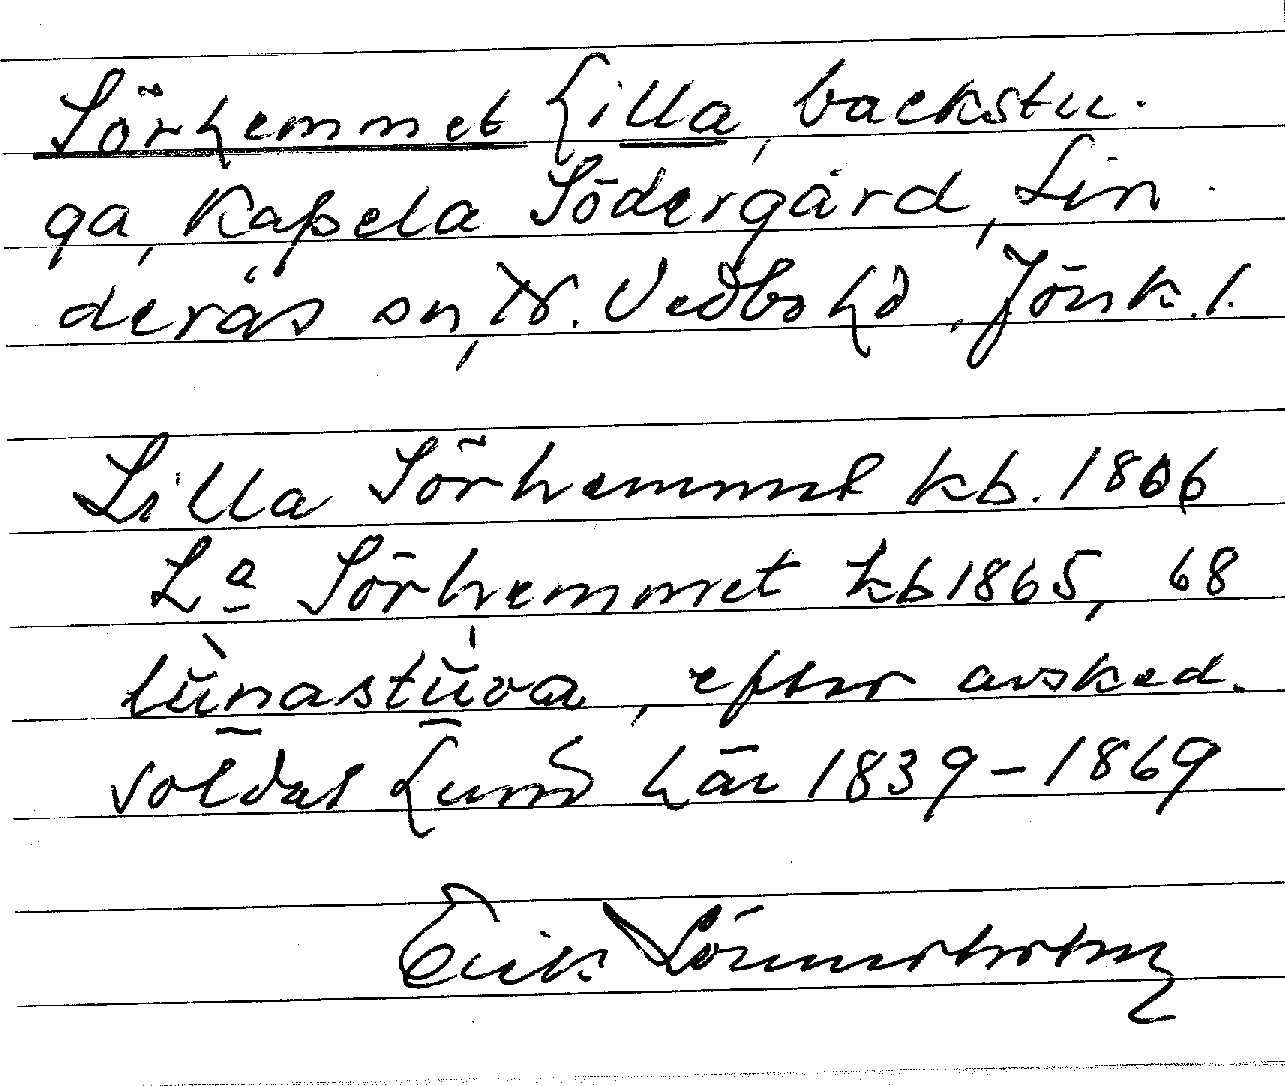 Sörhemmet Lilla, backstu-
ga, Kaxela Södergård, Lin-
derås sn, N. Vedbo hd, Jönk. l.
Lilla Sörhemmet kb. 1806
La Sörhemmet kb 1865, 68
lunastuva, efter avsked.
soldat Lund här 1839-1869
Erik Lönnerholm